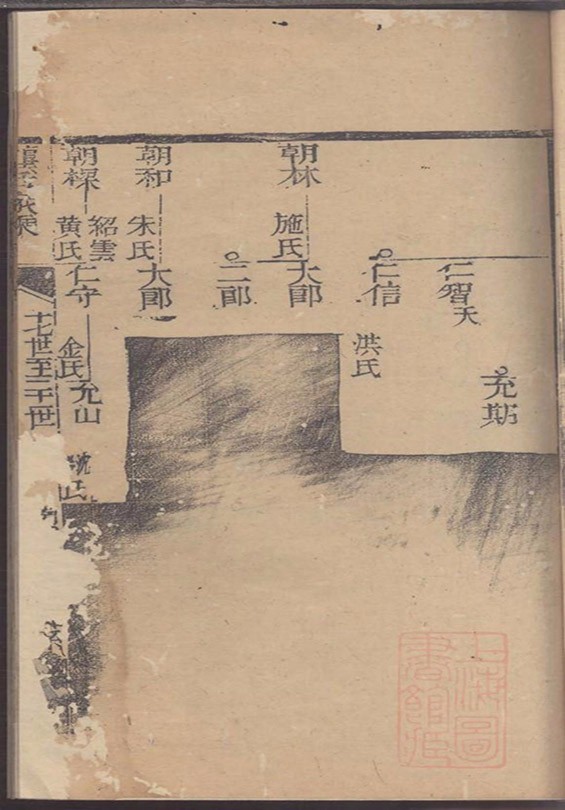 仁智夭
允斯
仁信
洪氏
朝林
施氏
大郎
二郎
朝和
朱氏
大郎
朝樑
紹雲
黄氏
仁守
金氏
允山
沈氏
十七世至二十世
上海圖
書館藏